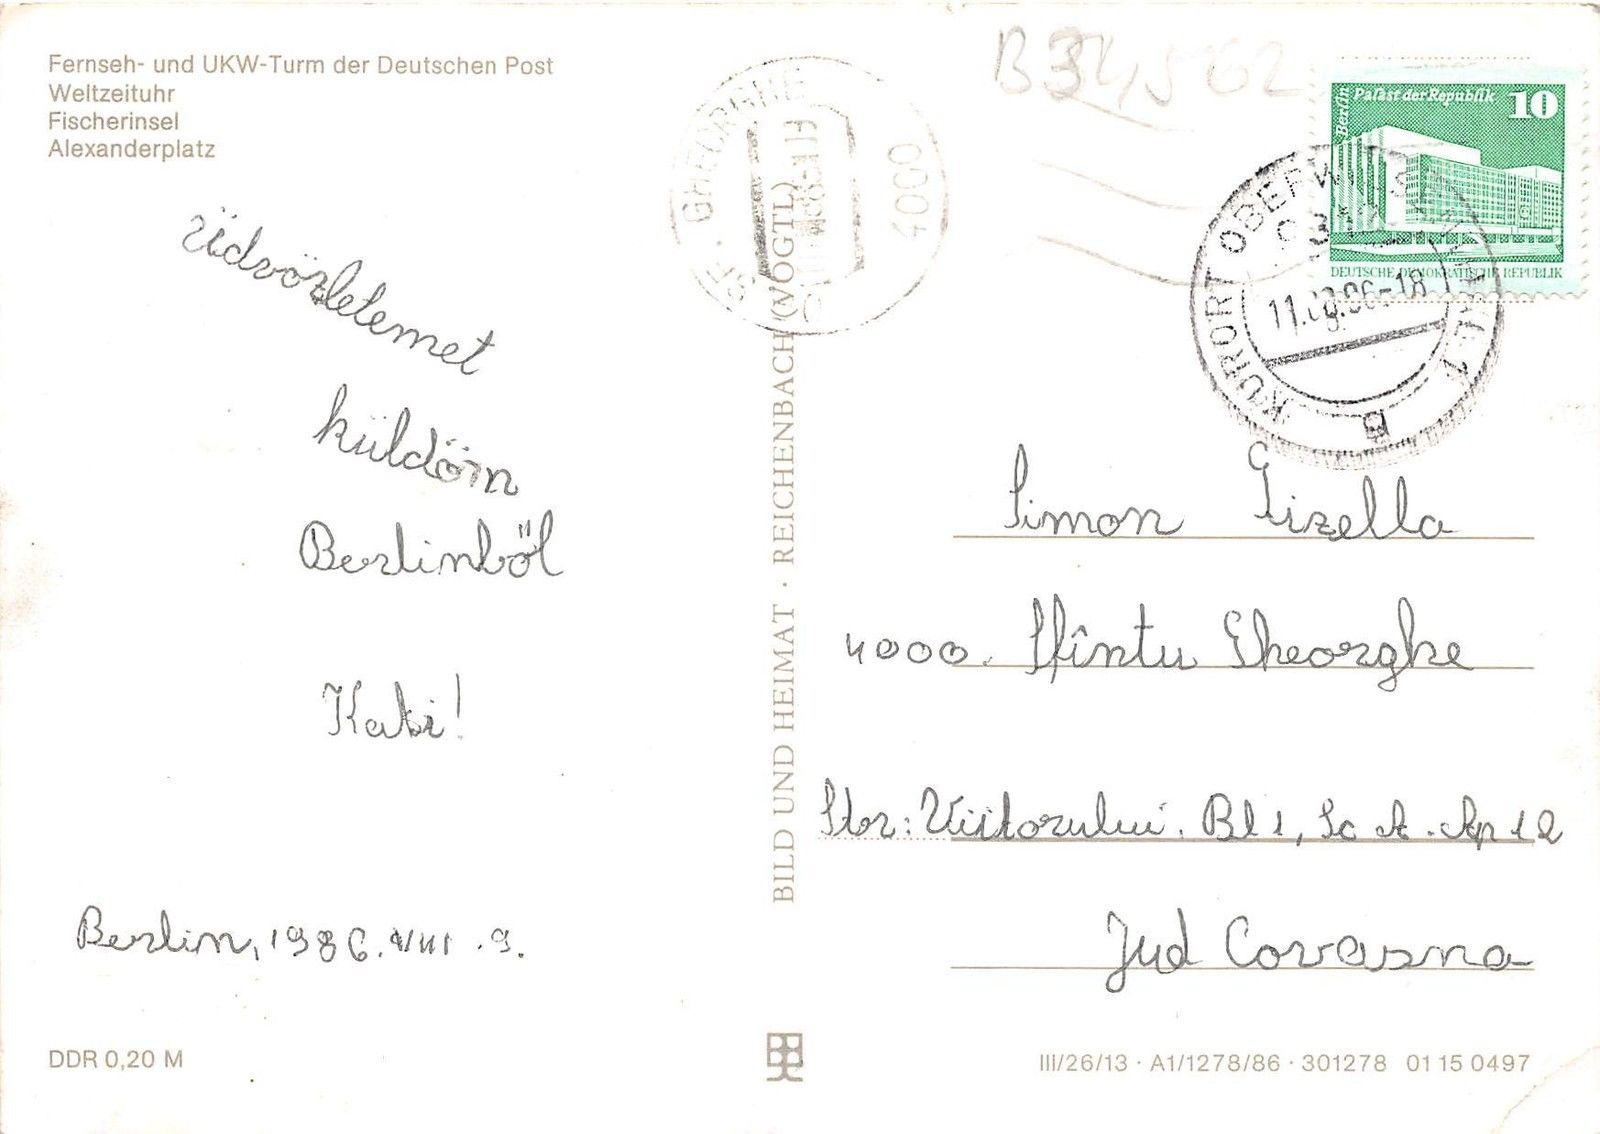 Fernseh- und UKW-Turm der Deutschen Post
Weltzeituhr
Fischerinsel
Alexanderplatz
üdvözletemet
küldöm
Berlinböl
Kati!
Berlin, 1986. VIII. 9.
DDR 0,20 M
BILD UND HEIMAT · REICHENBACH (VOGTL)
GHEORGHE
4000
B34562
Berlin
Palast der Republik
10
DEUTSCHE DEMOKRATISCHE REPUBLIK
KURORT
-18
Simon Gizella
4000. Sfîntu Gheorghe
Str: Viitorului. Bl 1, Sc A. Ap 12
Jud Covasna
III/26/13 · A1/1278/86 · 301278 01 15 0497